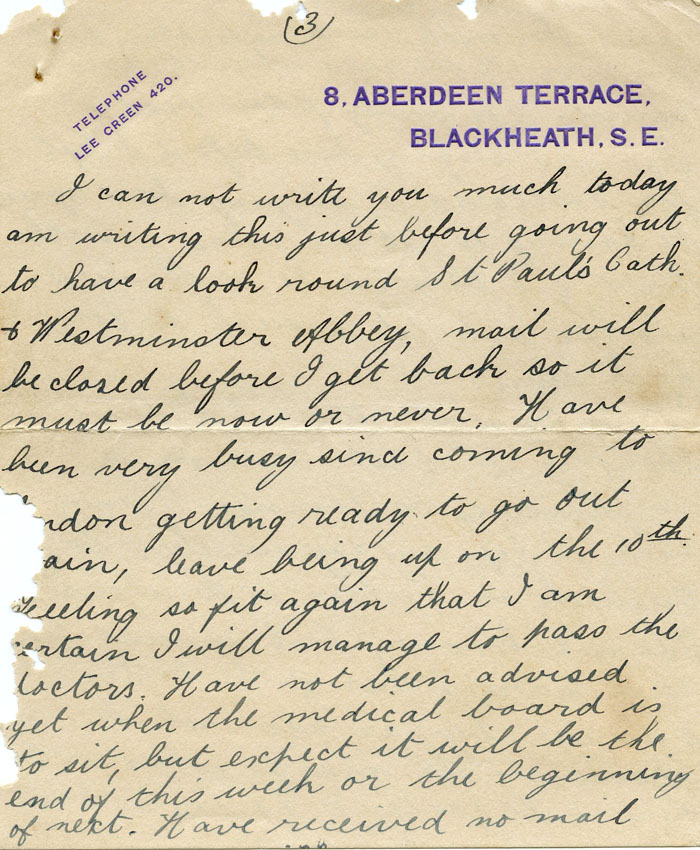 3
TELEPHONE
LEE GREEN 420.
8, ABERDEEN TERRACE,
BLACKHEATH, S.E.
I can not write you much today
am writing this just before going out
to have a look round St Paul's Cath.
& Westminster Abbey, mail will
be closed before I get back so it
must be now or never. Have
been very busy sind coming to
ndon getting ready to go out
ain, leave being up on the 10th.
eeling so fit again that I am
ertain I will manage to pass the
doctors. Have not been advised
yet when the medical board is
to sit, but expect it will be the
end of this week or the beginning
of next. Have received no mail